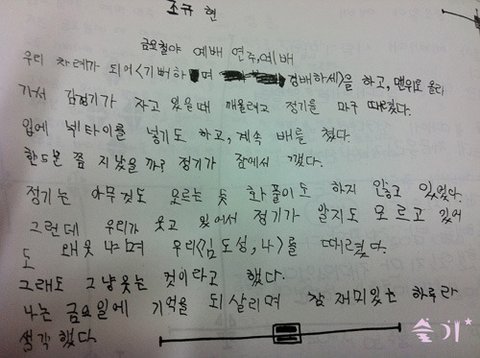 조규현
금요철야 예배 연주, 예배
우리 차례가 되어 <기뻐하며 경배하세>를 하고, 맨위로 올라
가서 감정기가 자고 있을때 깨울려고 정기를 마구 때렸다.
입에 넥타이를 넣기도 하고, 계속 배를 쳤다.
한 5분 쯤 지났을까? 정기가 잠에서 깼다.
정기는 아무것도 모르는 듯 화풀이도 하지 않고 있었다.
그런데 우리가 웃고 있어서 정기가 알지도 모르고 있어
도 왜웃냐며 우리<김도성, 나>를 때렸다.
그래도 그냥웃는 것이라고 했다.
나는 금요일에 기억을 되살리며 참 재미있는 하루라
생각했다
슬기